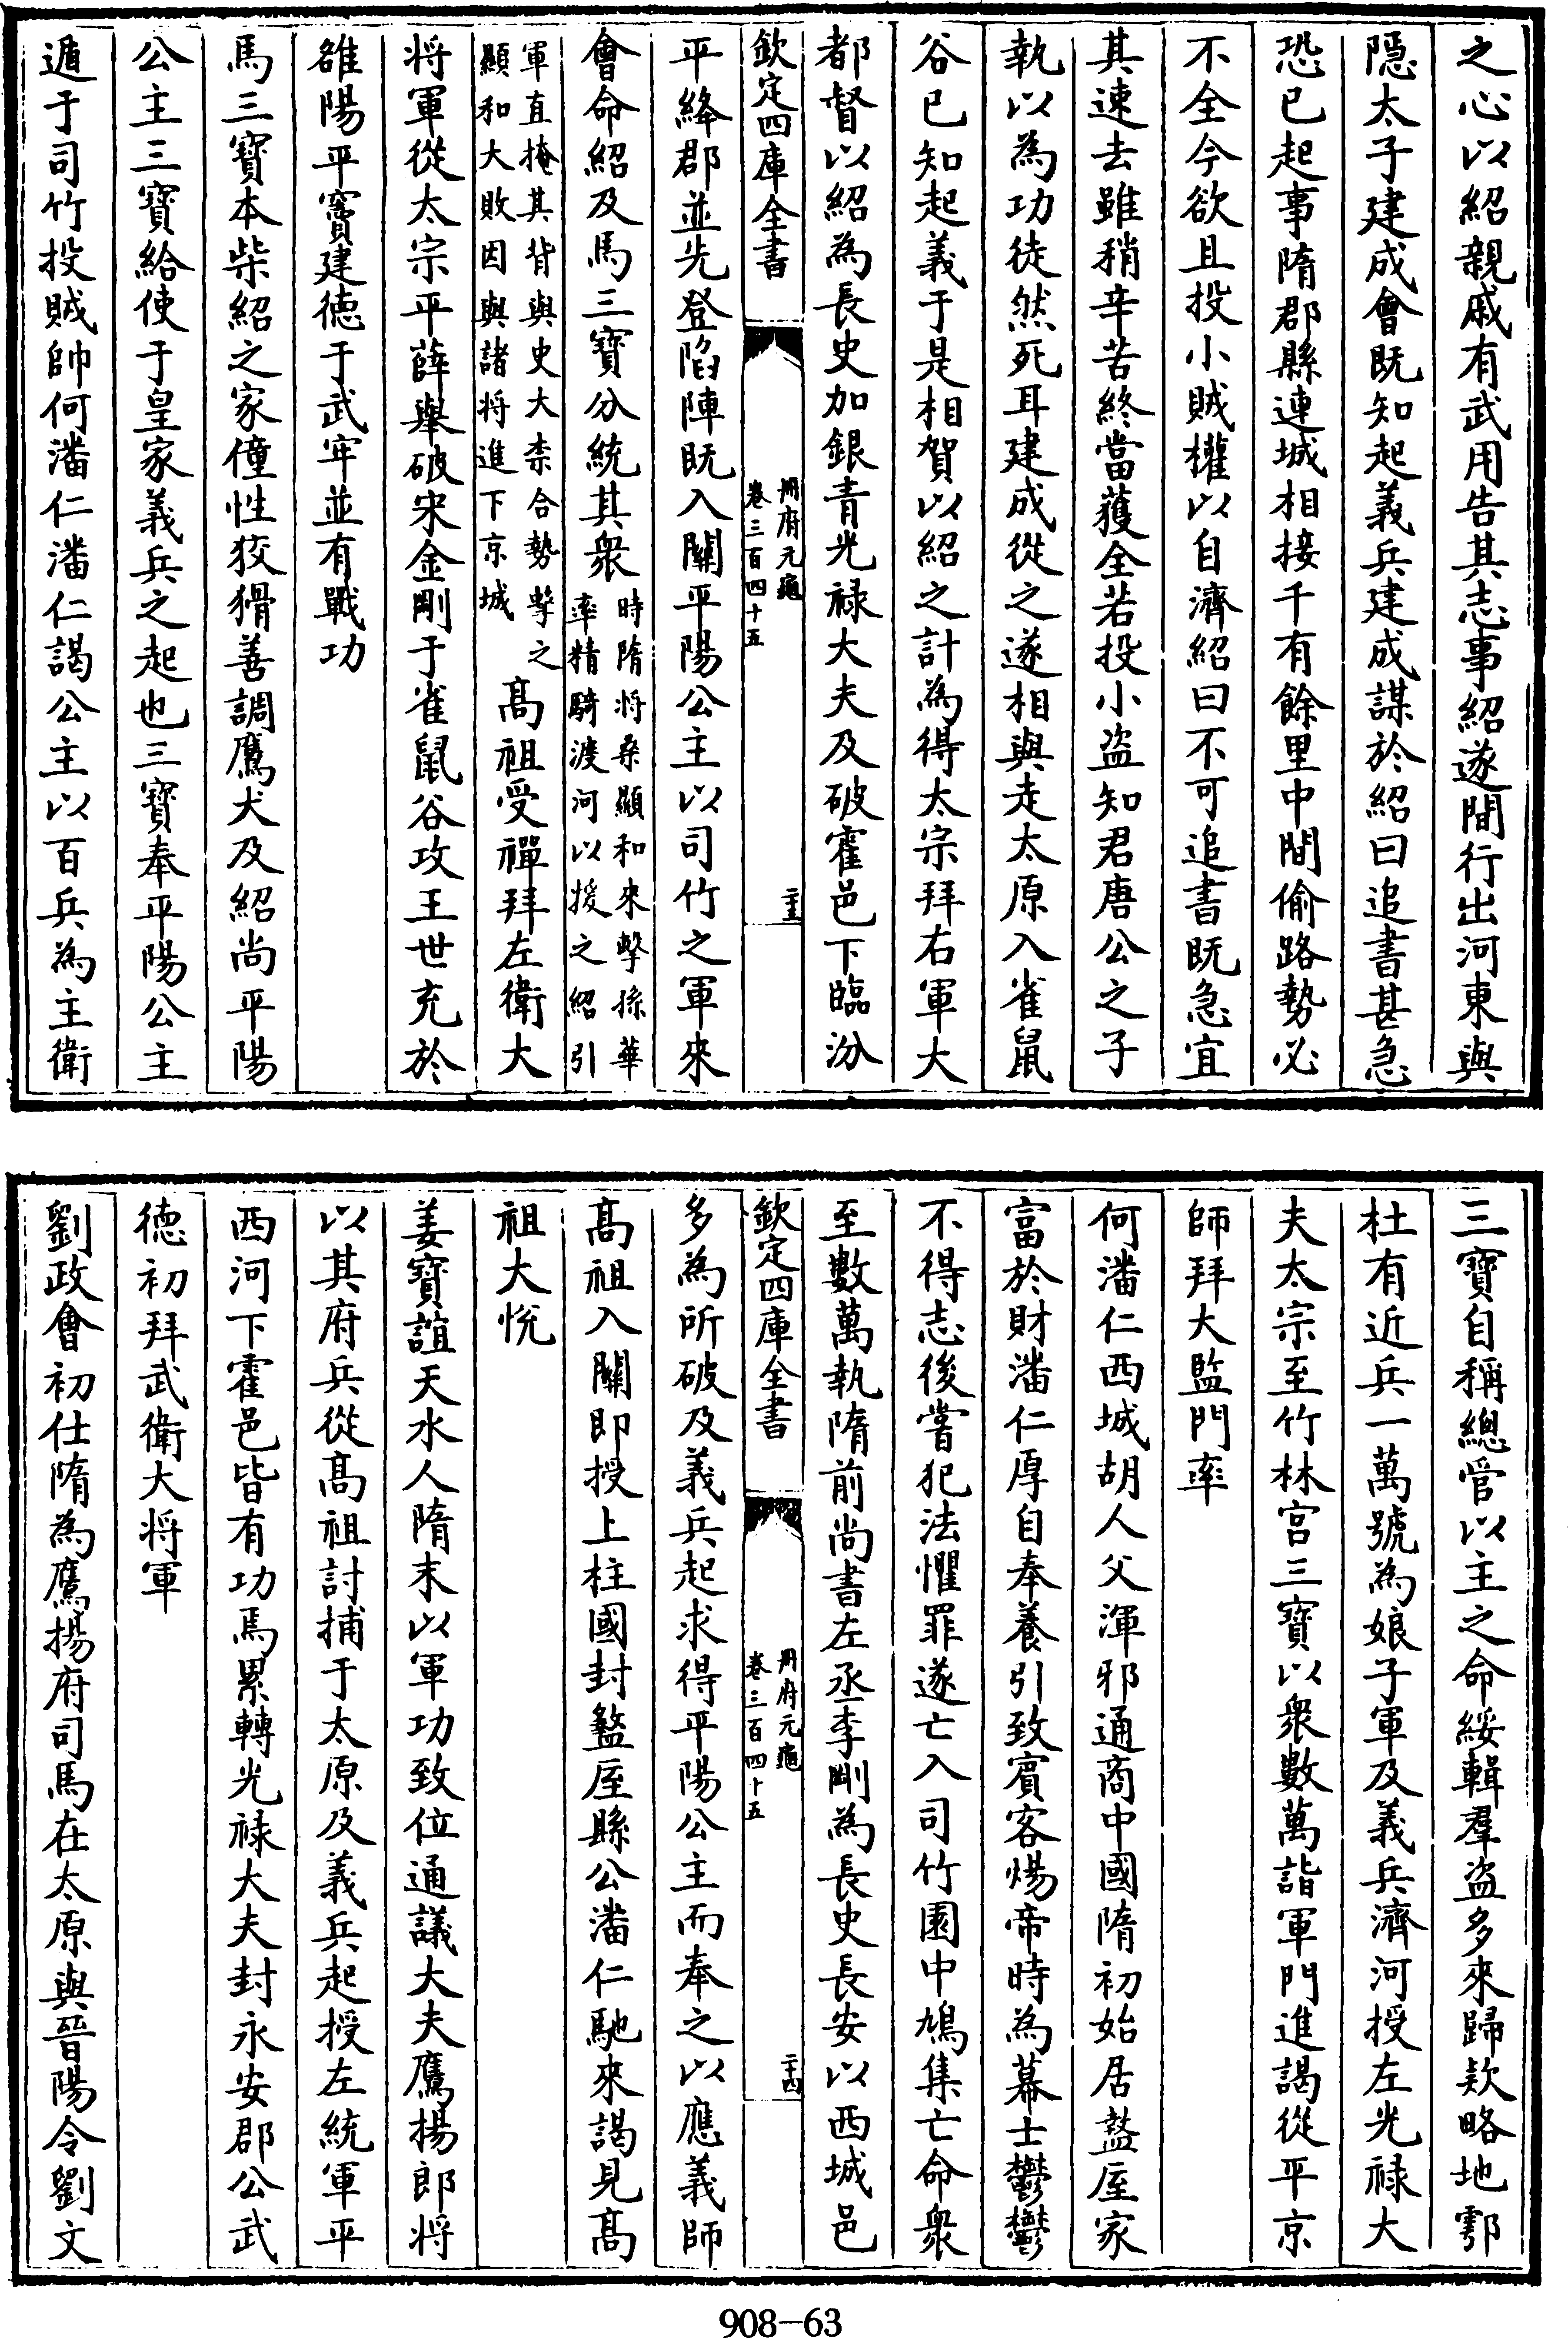 之心以紹親戚有武用告其志事紹遂間行出河東與
隱太子建成會既知起義兵建成謀於紹曰追書甚急
恐已起事隋郡縣連城相接千有餘里中間偷路勢必
不全今欲且投小賊權以自濟紹曰不可追書既急宜
其速去雖稍辛苦終當獲全若投小盜知君唐公之子
執以為功徒然死耳建成從之遂相與走太原入雀鼠
谷已知起義于是相賀以紹之計為得太宗拜右軍大
都督以紹為長史加銀青光祿大夫及破霍邑下臨汾
欽定四庫全書
冊府元龜
卷三百四十五
二十三
平絳郡並先登陷陣既入關平陽公主以司竹之軍來
會命紹及馬三寶分統其衆
時隋將桑顯和來擊孫華
率精騎渡河以援之紹引
軍直掩其背與史大柰合勢擊之
顯和大敗因與諸將進下京城
高祖受禪拜左衛大
將軍從太宗平薛舉破宋金剛于雀鼠谷攻王世充於
雒陽平竇建德于武牢並有戰功
馬三寶本柴紹之家僮性狡猾善調鷹犬及紹尚平陽
公主三寶給使于皇家義兵之起也三寶奉平陽公主
遁于司竹投賊帥何潘仁潘仁謁公主以百兵為主衛
三寶自稱總管以主之命綏輯羣盜多來歸欵略地鄠
杜有近兵一萬號為娘子軍及義兵濟河授左光祿大
夫太宗至竹林宮三寶以衆數萬詣軍門進謁從平京
師拜大監門率
何潘仁西城胡人父渾邪通商中國隋初始居盩厔家
富於財潘仁厚自奉養引致賓客煬帝時為幕士鬱鬱
不得志後嘗犯法懼罪遂亡入司竹園中鳩集亡命衆
至數萬執隋前尚書左丞李剛為長史長安以西城邑
欽定四庫全書
冊府元龜
卷三百四十五
二十四
多為所破及義兵起求得平陽公主而奉之以應義師
高祖入關即授上柱國封盩厔縣公潘仁馳來謁見高
祖大悅
姜寶誼天水人隋末以軍功致位通議大夫鷹揚郎將
以其府兵從高祖討捕于太原及義兵起授左統軍平
西河下霍邑皆有功馬累轉光祿大夫封永安郡公武
德初拜武衛大將軍
劉政會初仕隋為鷹揚府司馬在太原與晉陽令劉文
908-63